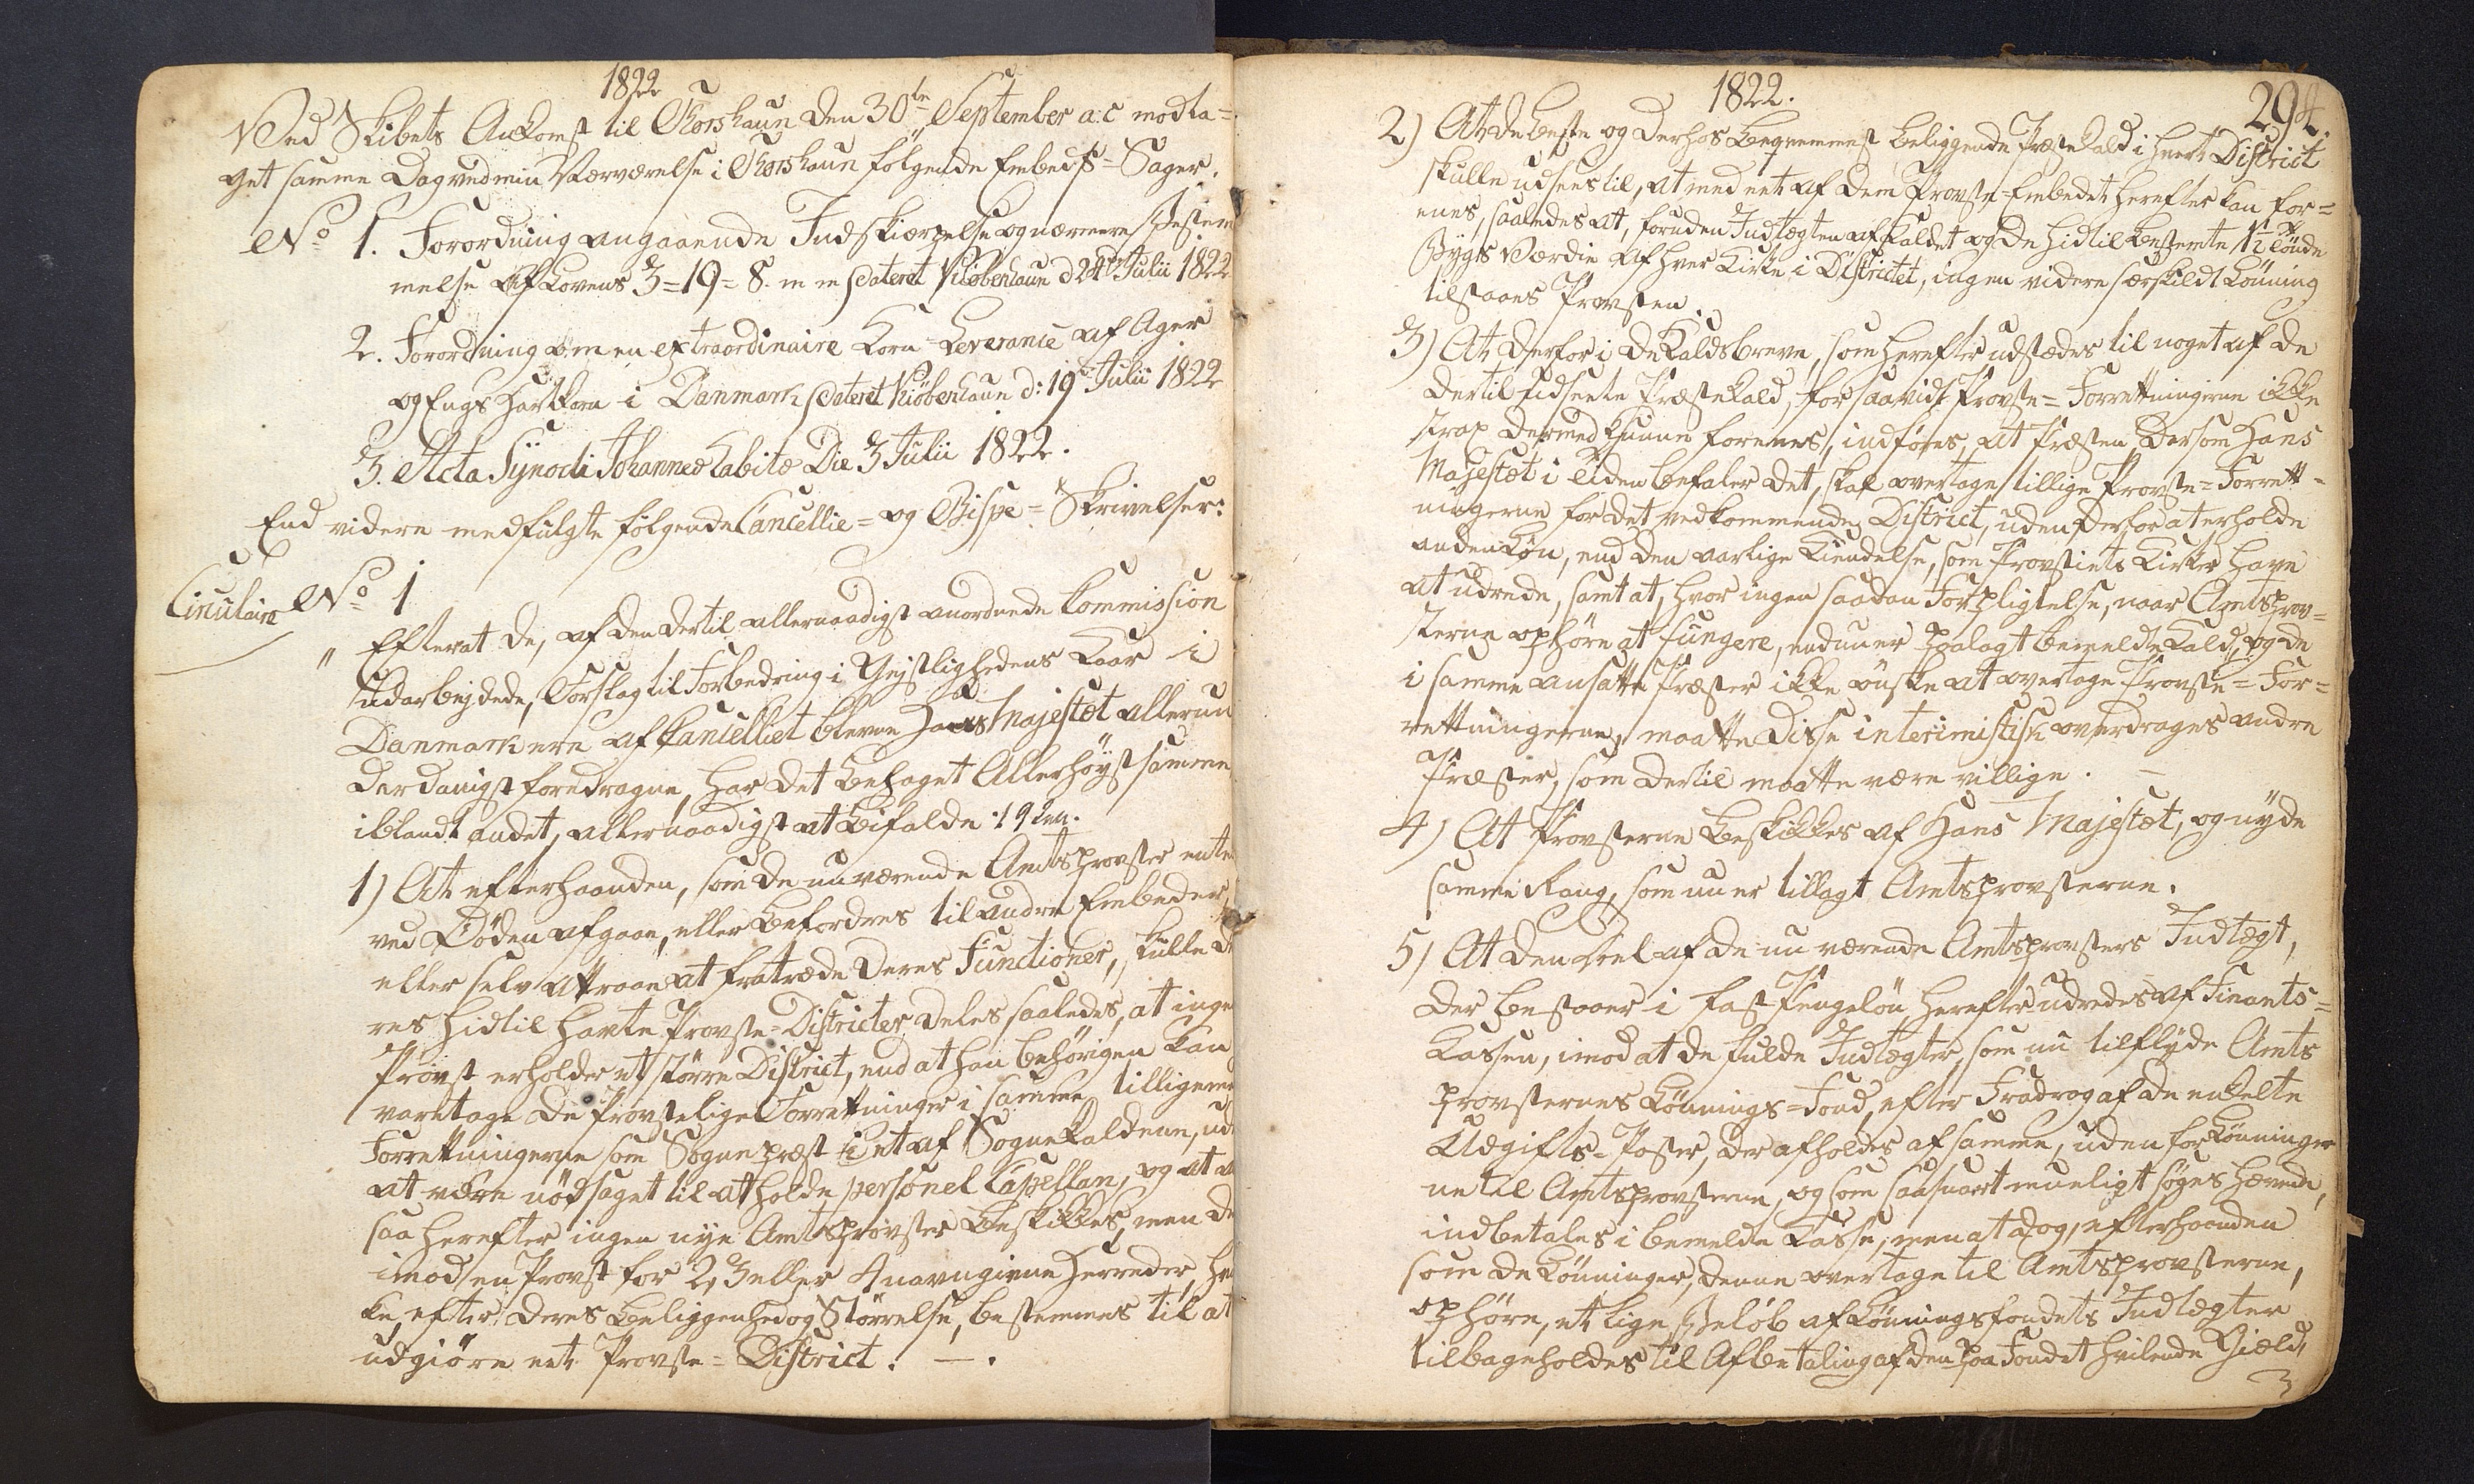 1822
Ved Skibets Ankomst til Thorshaun den 30te September a: c modta=
get samme Dag ved min Nærværelse i Thorshaun følgende Embeds=Sager.
No 1. Forordning angaaende Indskiærpelse og nærmere Bestem
melse af Lovens 3=19=8. m m dateret Kiøbenhaun d 24de Julii 1822
2. Forordning om en extraordinaire Korn=Leverance af Ager
og Engs Hartkorn i Danmark dateret Kiöbenhaun d: 19de Julii 1822
3. Acta Synodi Johannes habitæ Die 3 Julii 1822.
End videre medfulgte følgende Cancellie= og Bispe=Skrivelser:
Circulaire No 1
" Efterat de, af den dertil allernaadigst anordnede Commission
udarbejdede, Forslag til Forbedring i Gejstlighedens Kaar i
Danmark ere af Cancelliet blevne Hans Majestæt allerun
derdanigst foredragne, har det behaget Allerhöyst samme
iblandt andet, allernaadigst at bifalde:
1) At efterhaanden, som de nuværende Amtsprovster enten
ved Döden afgaae, eller befordres til andre Embeder,
eller selv attraae at fratræde deres Functioner, skulle de
res hidtil havte Provste=Districter deles saaledes, at inge
Provst erholder et större District, end at han behörigen kan
varetage de Provstelige Forretninger i samme, tilligemed
Forretningerne som Sognepræst i et af Sognekaldene, ud
at være nödsaget til at holde personel Capellan, og at a
saa herefter ingen nye Amtsprovster beskikkes, men de
imod en Provst for 2, 3 eller 4 navngivne Herreder, hvi
ke, efter deres Beliggenhed og Störrelse, bestemmes til at
udgiöre eet Provste=District. — .
1822.
294.
2) At de beste og derhos beqvemmest beliggende Præstekald i hvert District
skulle udsees til, at med eet af dem Provste=Embedet herefter kan for=
enes, saaledes at, foruden Indtægten af Kaldet og de hidtil bestemte 1½ Tönde
Bygs Værdie af hver Kirke i Districtet, ingen videre særskildt Lönning
tilstaaes Provsten.
3) At derfor i de Kaldsbreve, som herefter udstædes til noget af de
dertil udseete Præstekald, forsaavidt Provste=Forretningerne ikke
strax dermed kunne forenes, indføres, at Præsten, dersom Hans
Majestæt i Tiden befaler det, skal overtage tillige Provste=Forrett=
ningerne for det vedkommende District, uden derfor at erholde
anden Lön, end den aarlige Kiendelse, som Provstiets Kirker have
at udrede, samt at, hvor ingen saadan Forpligtelse, naar Amtsprov=
sterne ophöre at fungere, endnu er paalagt bemeldte Kald, og de
i samme ansatte Præster ikke önske at overtage Provste=For=
retningerne, maatte disse interimistisk overdrages andre
Præster, som dertil maatte være villige. —
4) At Provsterne beskikkes af Hans Majestæt, og nyde
samme Rang, som nu er tillagt Amtsprovsterne.
5) At den Deel af de nu værende Amtsprovsters Indtægt,
der bestaaer i fast Pengelön, herefter udredes af Finants=
Kassen, imod at de fulde Indtægter, som nu tilflyde Amts
provsternes Lönnings=Fond, efter Fradrag af de enkelte
Udgifts=Poster, der afholdes af samme, uden for Lönninger
ne til Amtsprovsterne, og som saasnart mueligt söges hævede,
indbetales i bemeldte Kasse, men at dog, efterhaanden
som de Lönninger, denne overtage til Amtsprovsterne,
ophöre, et lige Belöb af Lönningsfondets Indtægter
tilbageholdes til Afbetaling af den paa Fondet hvilende Gield,